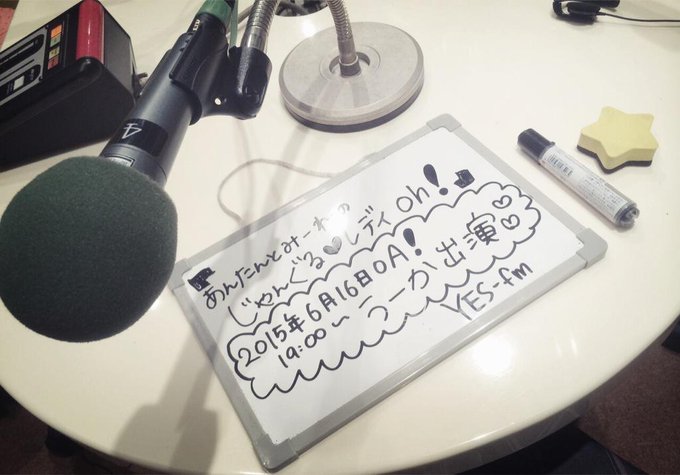 あんたんとみーわの
じゃんぐる♥レディ oh!
2015年6月16日OA!
19:00〜 うーか出演♡♡
YES-fm
4